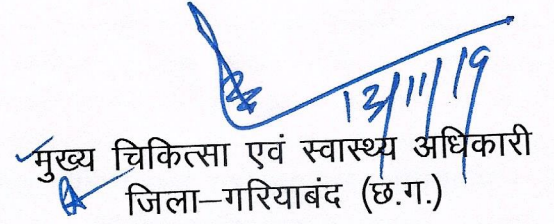 13/11/19
मुख्य चिकित्सा एवं स्वास्थ्य अधिकारी
जिला–गरियाबंद (छ.ग.)